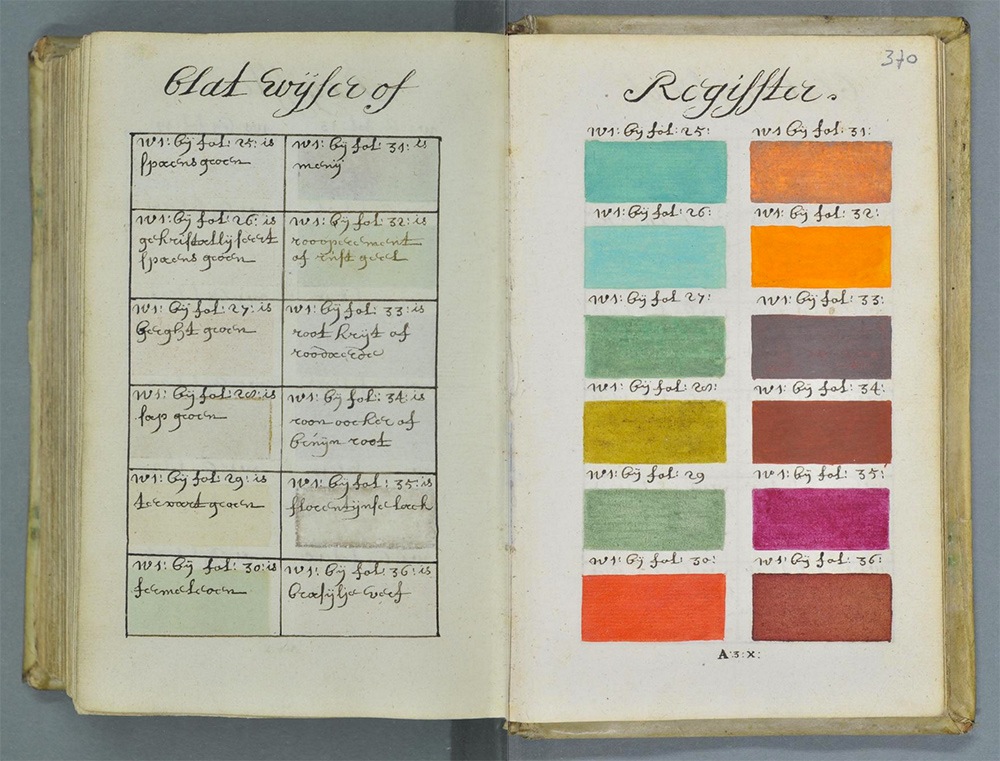 Blat Wÿser of
w1: bÿ fol: 25: is
spaens groen
w1: bÿ fol: 31: is
menÿ
w1: bÿ fol: 26: is
gekristallÿseert
spaens groen
w1: bÿ fol: 32: is
roooperement
of rust geel
w1: bÿ fol: 27: is
berght groen
w1: bÿ fol: 33: is
root krÿt of
roodaerde
w1: bÿ fol: 28: is
sap groen
w1: bÿ fol: 34: is
roon oocker of
bruÿn root
w1: bÿ fol: 29: is
terwart groen
w1: bÿ fol: 35: is
florentÿnse lack
w1: bÿ fol: 30: is
fermeloen
w1: bÿ fol: 36: is
brasÿlje verf
Regisster.
370
w1: bÿ fol: 25:
w1: bÿ fol: 31:
w1: bÿ fol: 26:
w1: bÿ fol: 32:
w1: bÿ fol: 27:
w1: bÿ fol: 33:
w1: bÿ fol: 28:
w1: bÿ fol: 34:
w1: bÿ fol: 29
w1: bÿ fol: 35:
w1: bÿ fol: 30:
w1: bÿ fol: 36:
A:3:X: